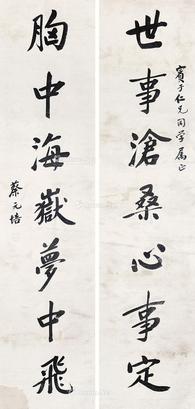 賓于仁兄同学属正
世事滄桑心事定
胸中海嶽夢中飛
蔡元培